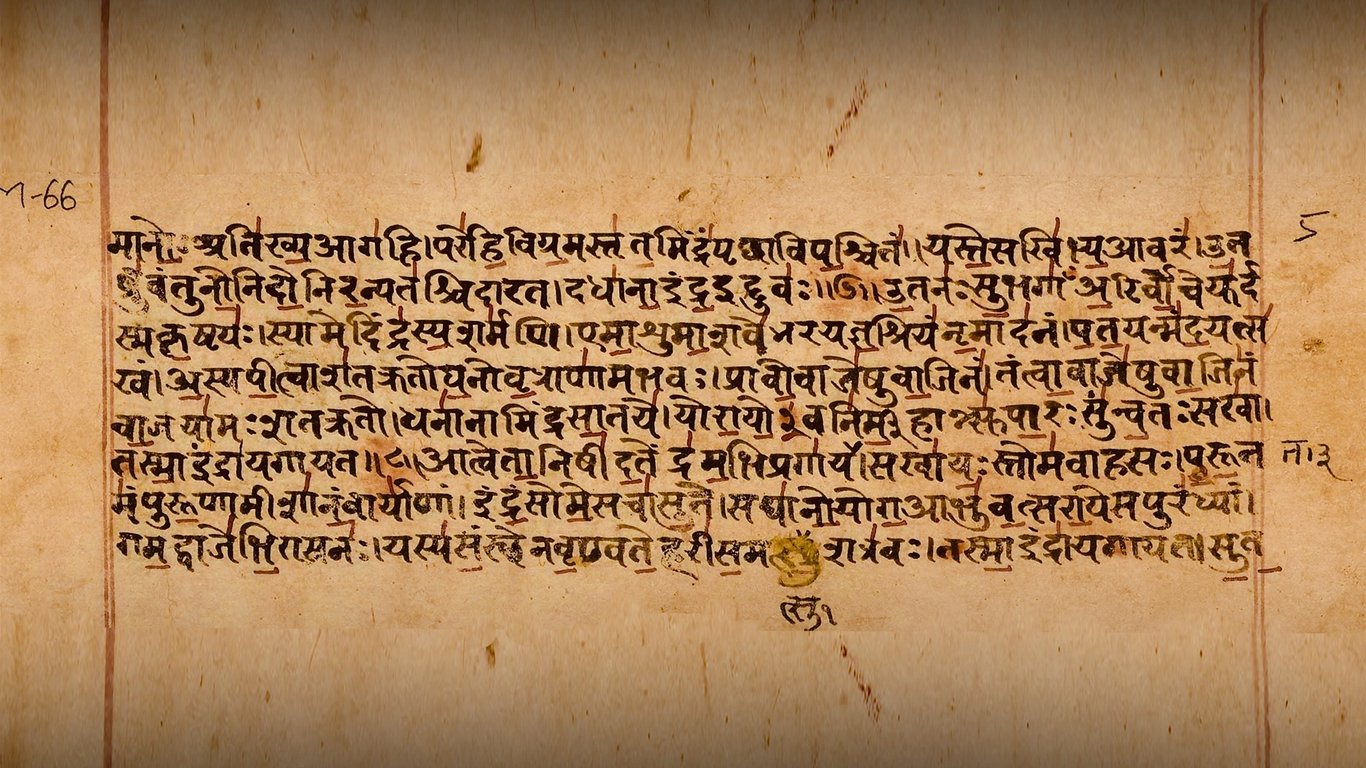 -66
5
मानोअतिख्यआगहि।परेहिविग्रमस्तृतमिंद्रंपृच्छाविपश्चितं।।यस्तेसखिभ्यआवरं।उत
ब्रुवंतुनोनिदोनिरन्यतश्चिदारत।दधानाइंद्रइद्दुवः॥७॥उतनःसुभगाँअरिर्वोचेयुर्द
स्मकृष्टयः।स्यामेदिंद्रस्यशर्मणि।एमाशुमाशवेभरयज्ञश्रियंनृमादनं।पतयन्मंदयत्स
खं।अस्यपीत्वाशतक्रतोघनोवृत्राणामभवः।प्रावोवाजेषुवाजिनं।तंत्वावाजेषुवाजिनं
वाजयामःशतक्रतो।धनानामिंद्रसातये।योरायो३वनिर्महान्त्सुपारःसुन्वतःसखा।
तस्माइंद्रायगायत॥८॥आत्वेतानिषीदतेंद्रमभिप्रगायत।सखायःस्तोमवाहसः।पुरूत
त।३
मंपुरूणामीशानंवार्याणां।इंद्रंसोमेसचासुते।सघानोयोगआभुवत्सरायेसपुरंध्यां।
गमद्वाजेभिरासनः।यस्यसंस्थेनवृण्वतेहरीसमत्सुशत्रवः।तस्माइंद्रायगायत।सुत
त्सु१